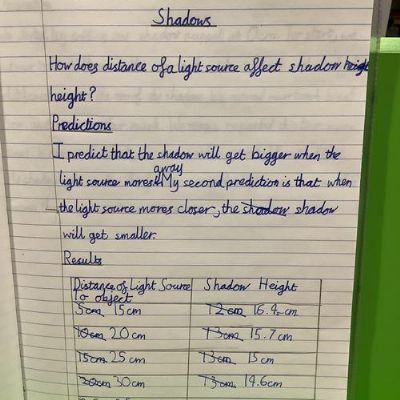 Shadows
How does distance of a light source affect shadow heigt
height?
Predictions
I predict that the shadow will get bigger when the
away
light source mores. My second prediction is that when
the light source mores closer, the shadow shadow
will get smaller.
Results
Distance of Light Source Shadow Height
To object
5cm 15cm 12cm 16.9cm
10cm 20cm 13cm 15.7cm
15cm 25cm 13cm 15cm
30cm 13cm 14.6cm